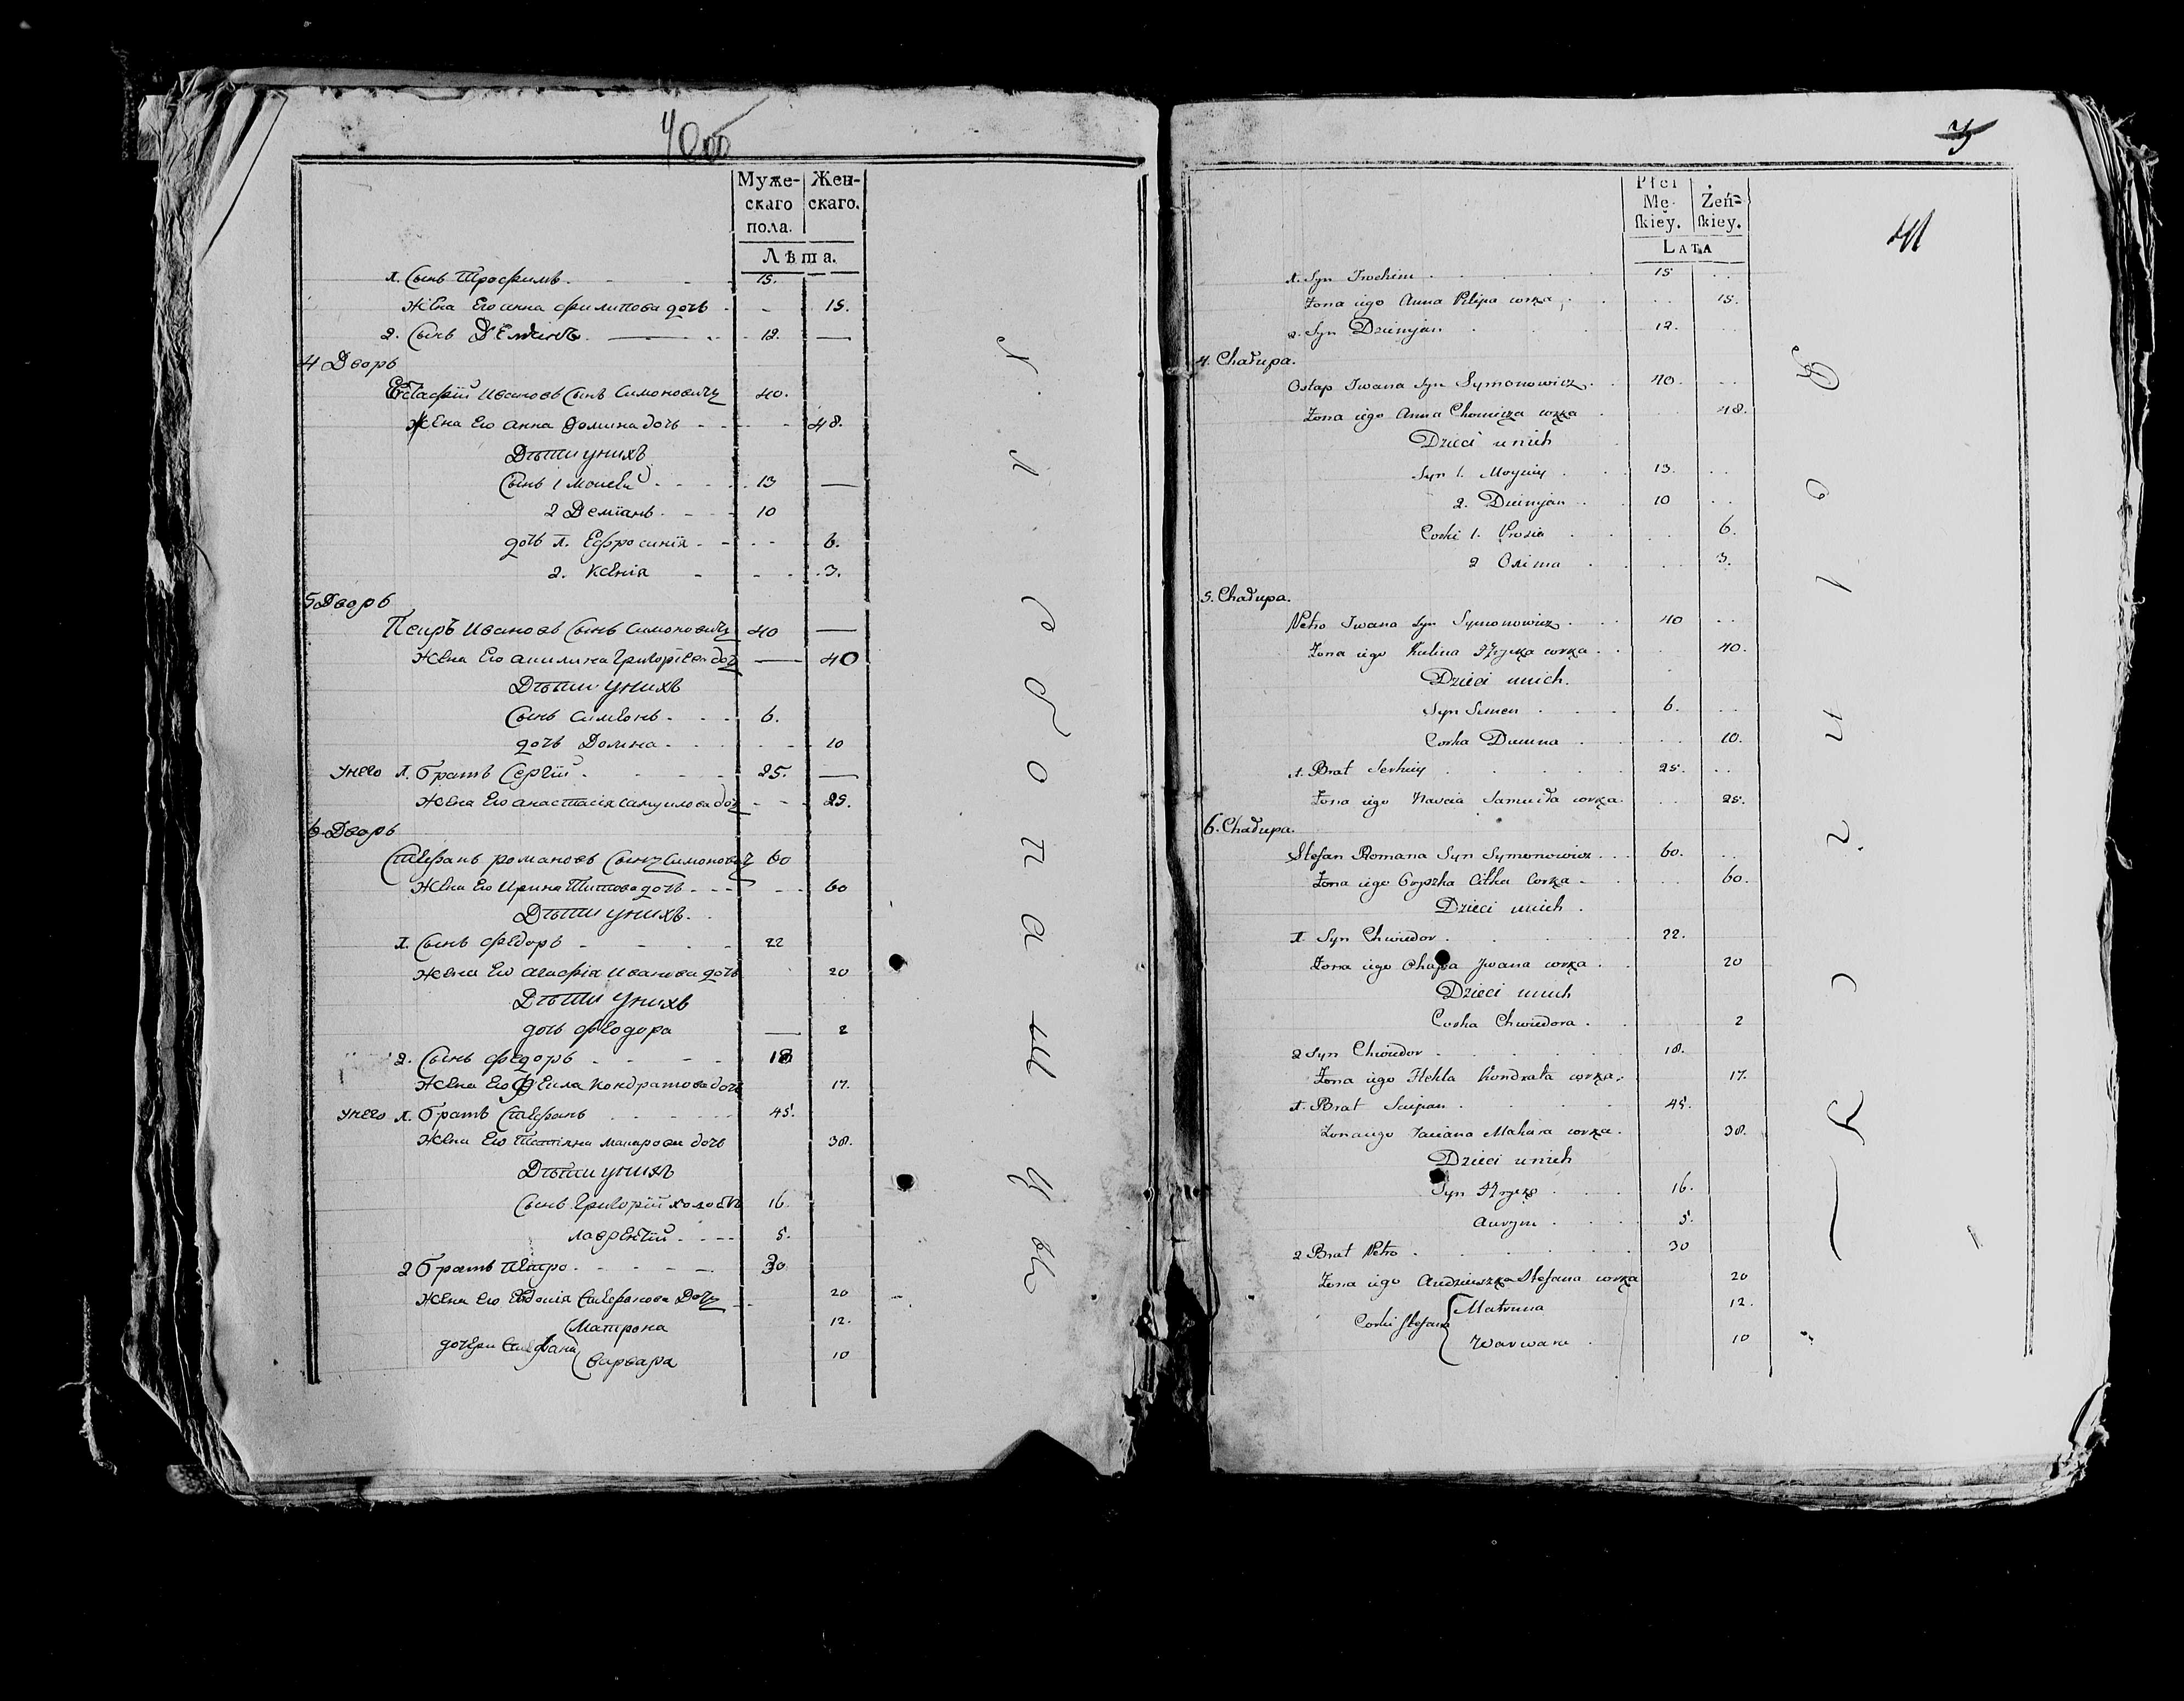 40об
Муже-
скаго
пола.
Жен-
скаго.
Лѣта.
1. Сынъ Трофимъ 15.
Жена Его анна филипова дочь 15.
2. Сынъ Демянъ 12.
4 Дворъ
Евстафій Ивановъ Сынъ Симоновичъ 40.
Жена Его Анна Фомина дочь 48.
Дѣти унихъ
Сынъ 1 Моисей 13
2 Деміанъ 10
дочь 1. Ефросинія 6.
2. Ксенія 3.
5 Дворъ
Петръ Ивановъ Сынъ Симоновичъ 40
Жена Его акилина Григоріева доч 40
Дѣти унихъ
Сынъ Симеонъ 6.
дочь Домна 10
унего 1. братъ Сергій 25.
Жена Его анастасія Самуилова доч 25.
6 Дворъ
Стефанъ романовъ Сынъ Симонович 60
Жена Его Ирина Титова дочь 60
Дѣти унихъ
1. Сынъ федоръ 22
Жена Его агафія Иванова дочь 20
Дѣти унихъ
дочь феодора 2
2. Сынъ федоръ 18
Жена Его фекла Кондратова дочь 17.
унего 1. братъ Стефанъ 45.
Жена Его Татіяна Макарова дочь 38.
Дѣти унихъ
Сынъ Григорій холостъ 16.
Лаврентій 5.
2 братъ Петро 30
Жена Его Евдокія Стефанова Дочь 20
дочери Стефана Матрона 12.
Варвара 10
Płci
Mę-
skiey.
Żeń-
skiey.
Lata
41
1. Syn Trochim 15
Żona iego Anna Pilipa corka 15.
2. Syn Dziemjan 12.
4. Chałupa.
Ostap Iwana Syn Symonowicz 40.
Żona iego Anna Chomicza corka 48.
Dzieci unich
Syn 1. Moysiey 13.
2. Dziemjan 10
Corki 1. Prosia 6.
2 3.
5. Chałupa.
Petro Iwana Syn Symonowicz 40
Żona iego Kulina Hryćka corka 40.
Dzieci unich.
Syn Semen 6.
Corka Dumna 10.
1. Brat Serhiey 25.
Żona iego Nascia Samuiła corka 25.
6. Chałupa.
Stefan Romana Syn Symonowicz 60.
Żona iego Oryszka Citka Corka 60.
Dzieci unich
1. Syn Chwiedor 22.
Żona iego Chapka Jwana corka 20
Dzieci unich
Corka Chwiedora 2
2 Syn Chwiedor 18.
Żona iego Hekla Kondrata corka 17.
1. Brat Sciepan 45.
Żona iego Taciana Makara corka 38.
Dzieci unich
Syn Hryćko 16.
5.
2 Brat Petro 30
Żona iego Audziuszka Stefana corka 20
Corki Stefana Matruna 12.
Warwara 10